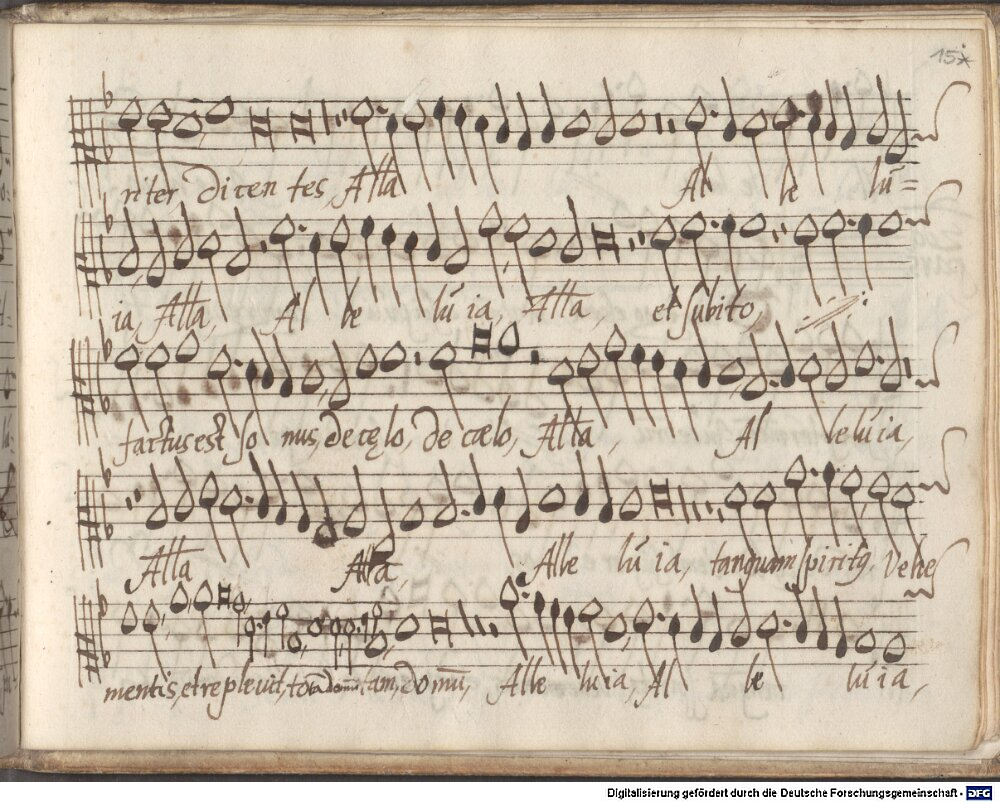 15
riter dicen tes, Alla Al le lu=
ia, Alla, Al le lu ia, Alla, et subito,
factus est so nus, de cęlo, de cœlo, Alla, Al le lu ia,
Alla Alla Alle lu ia, tanquam spirit9, vehe
mentis, et replevit, tam, domū, Alle lu ia, Al le lu ia,
Digitalisierung gefördert durch die Deutsche Forschungsgemeinschaft - DFG